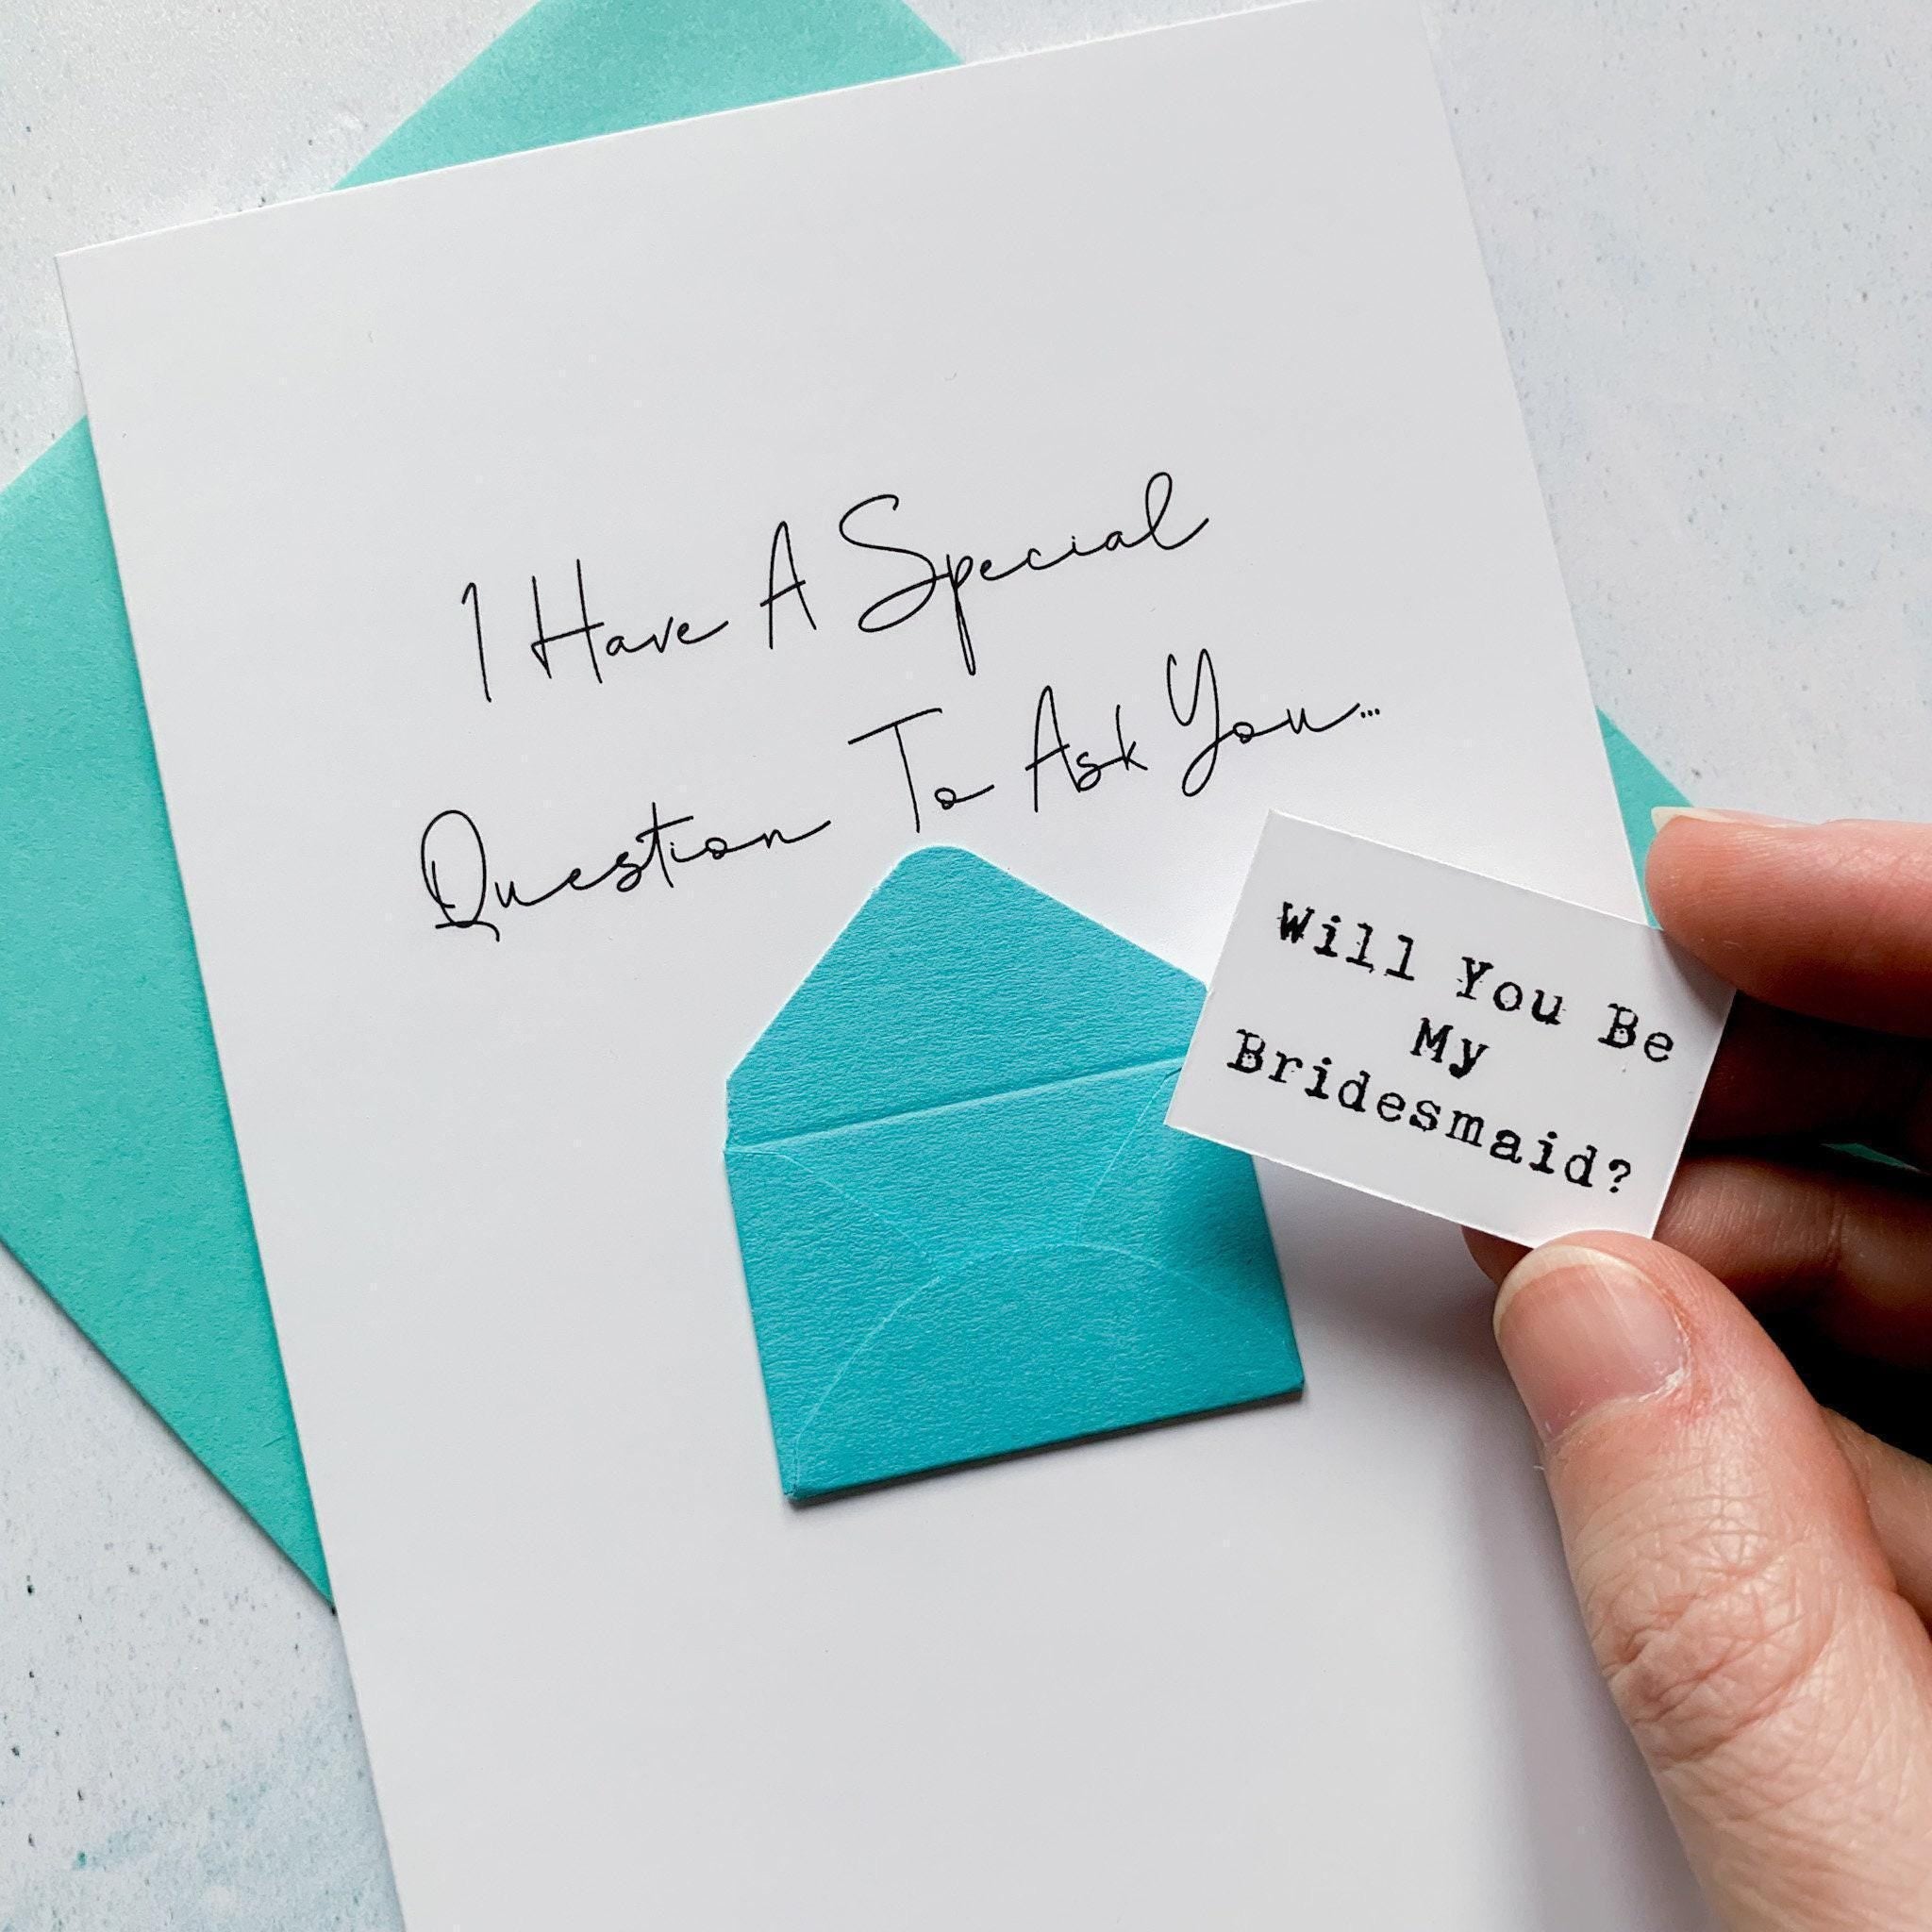 I Have A Special
Question To Ask You...
Will You Be
My
Bridesmaid?